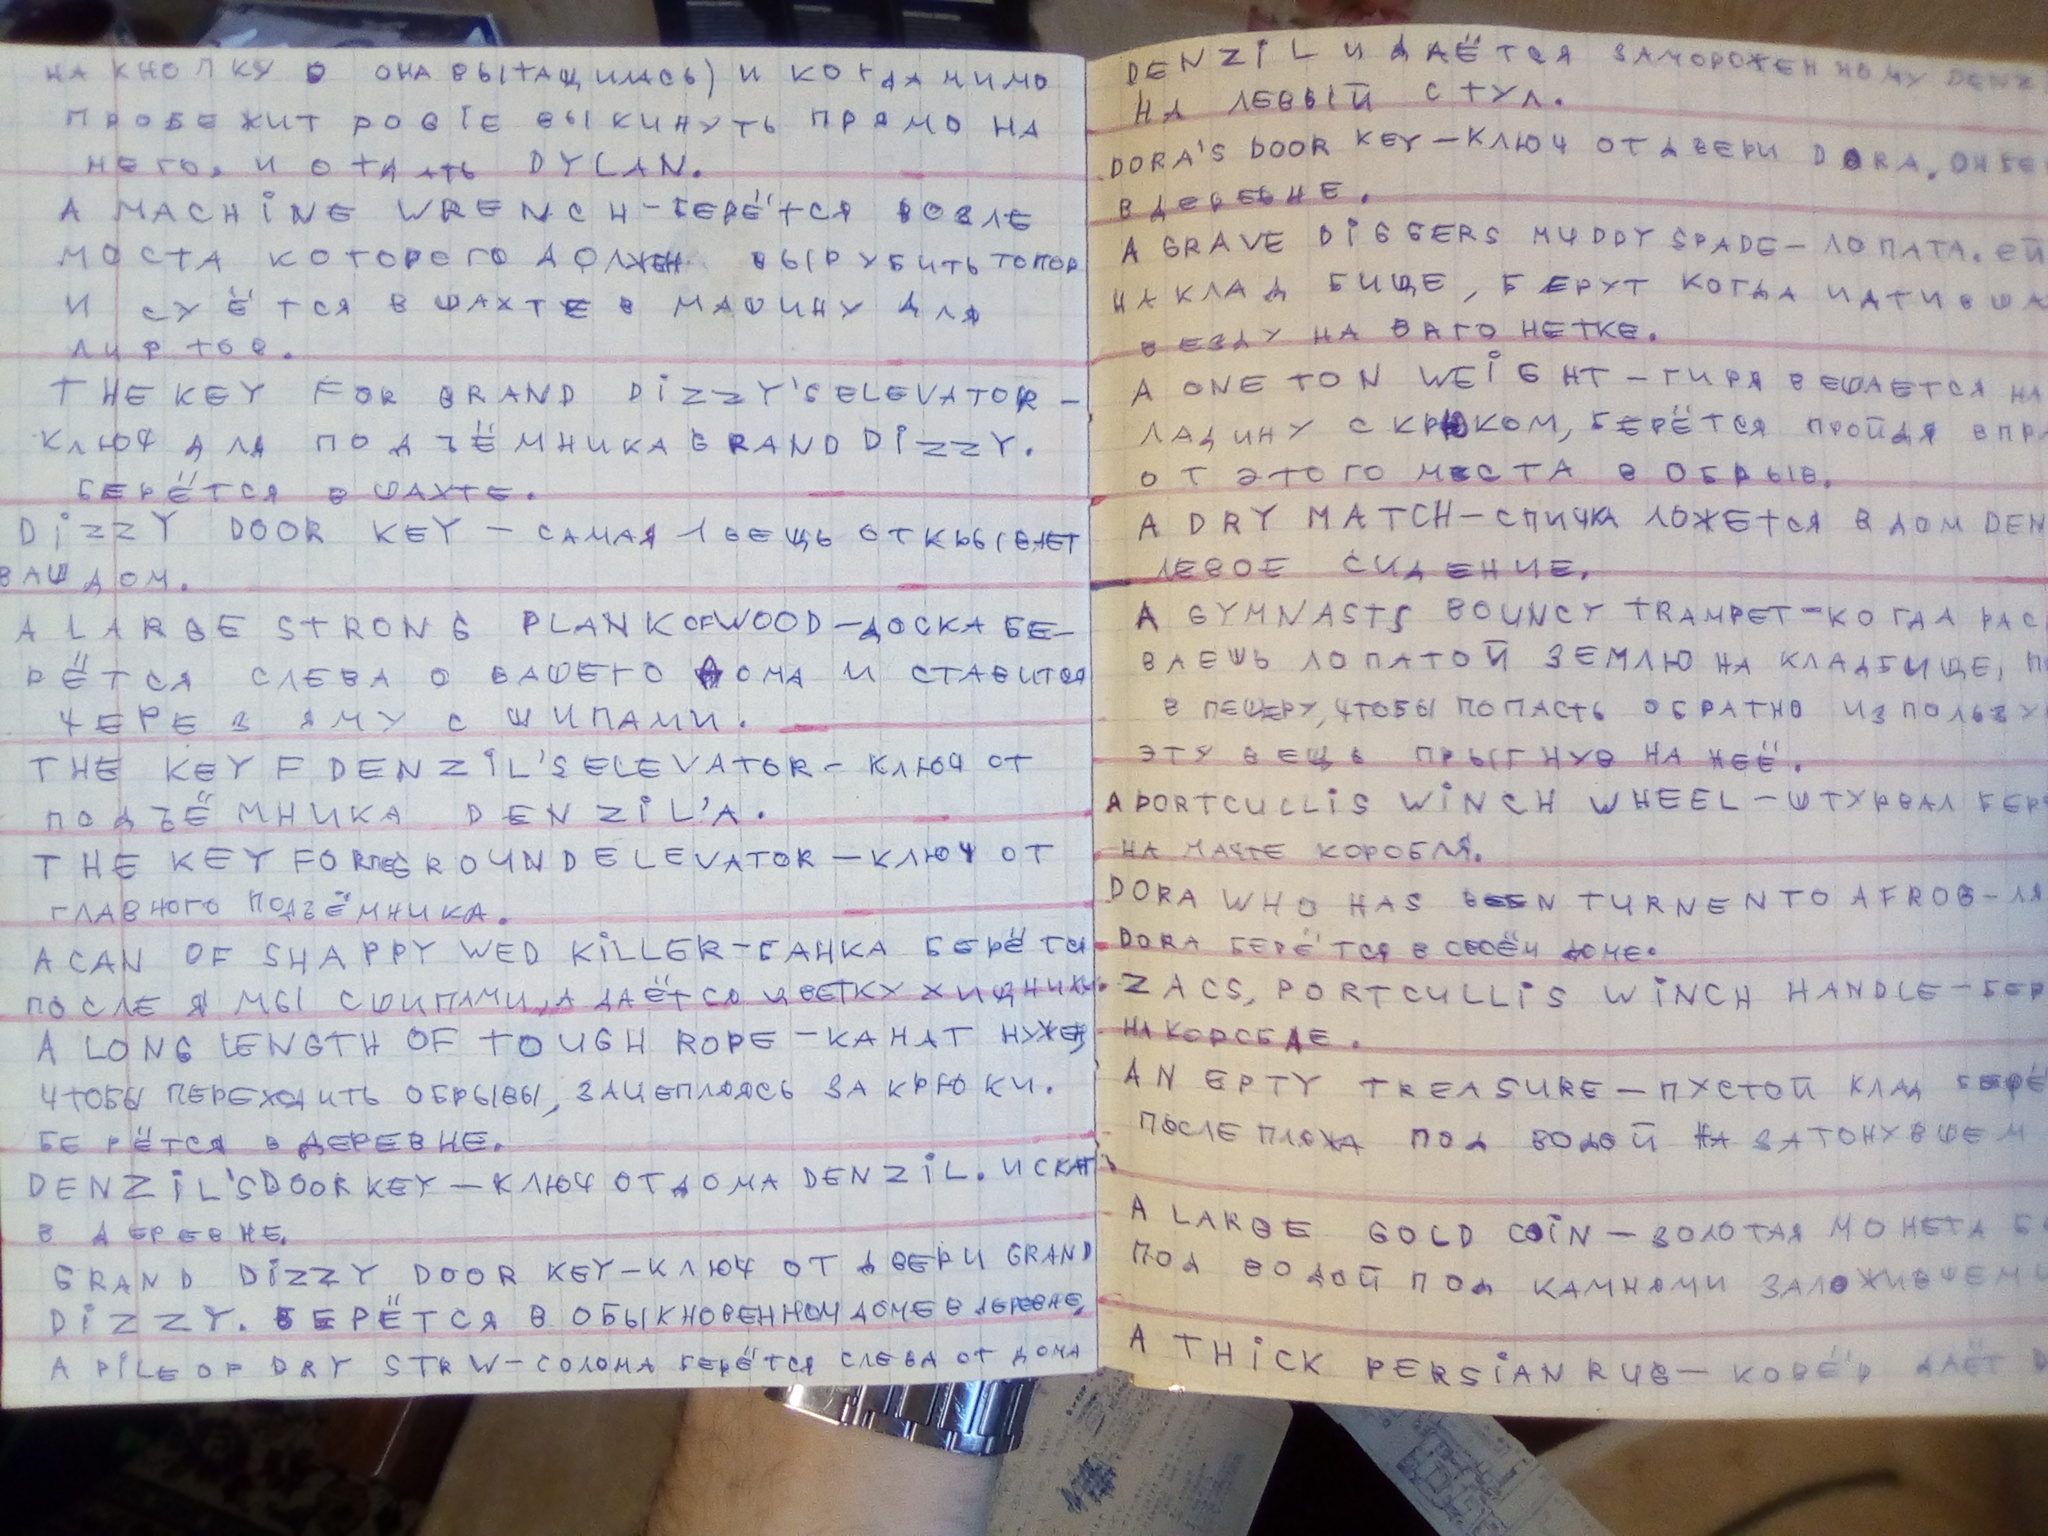 НА КНОПКУ О ОНА ВЫТАЩИЛАСЬ) И КОГДА МИМО
ПРОБЕЖИТ POGIE ВЫКИНУТЬ ПРЯМО НА
НЕГО. И ОТДАТЬ DYLAN.
A MACHINE WRENCH-БЕРЁТСЯ ВОЗЛЕ
МОСТА КОТОРОГО ДОЛЖЕН ВЫРУБИТЬ ТОПОР
И СУЁТСЯ В ШАХТЕ В МАШИНУ ДЛЯ
ЛИФТОВ.
THE KEY FOR GRAND DIZZY'S ELEVATOR -
КЛЮЧ ДЛЯ ПОДЪЁМНИКА GRAND DIZZY.
БЕРЁТСЯ В ШАХТЕ.
DIZZY DOOR KEY - САМАЯ 1 ВЕЩЬ ОТКРЫВАЕТ
ВАШ ДОМ.
A LARGE STRONG PLANK OF WOOD-ДОСКА БЕ-
РЁТСЯ СЛЕВА О ВАШЕГО ДОМА И СТАВИТСЯ
ЧЕРЕЗ ЯМУ С ШИПАМИ.
THE KEY F DENZIL'S ELEVATOR- КЛЮЧ ОТ
ПОДЪЁМНИКА DENZIL'A.
THE KEY FOR GROUND ELEVATOR - КЛЮЧ ОТ
ГЛАВНОГО ПОДЪЁМНИКА.
A CAN OF SHAPPY WED KILLER-БАНКА БЕРЁТСЯ
ПОСЛЕ ЯМЫ С ШИПАМИ, А ДАЁТСЯ ЦВЕТКУ ХИЩНИКУ.
A LONG LENGTH OF TOUGH ROPE-КАНАТ НУЖЕН,
ЧТОБЫ ПЕРЕХОДИТЬ ОБРЫВЫ, ЗАЦЕПЛЯЯСЬ ЗА КРЮКИ.
БЕРЁТСЯ В ДЕРЕВНЕ.
DENZIL'S DOOR KEY - КЛЮЧ ОТ ДОМА DENZIL. ИСКАТЬ
В ДЕРЕВНЕ.
GRAND DIZZY DOOR KEY-КЛЮЧ ОТ ДВЕРИ GRAND
DIZZY. БЕРЁТСЯ В ОБЫКНОВЕННОМ ДОМЕ В ДЕРЕВНЕ.
A PILE OF DRY STRW-СОЛОМА БЕРЁТСЯ СЛЕВА ОТ ДОМА
DENZIL И ДАЁТСЯ ЗАМОРОЖЕННОМУ DENZ
НА ЛЕВЫЙ СТУЛ.
DORA'S DOOR KEY-КЛЮЧ ОТ ДВЕРИ DORA. ОН БЕ
В ДЕРЕВНЕ.
A GRAVE DIGGERS MUDDY SPADE- ЛОПАТА. ЕЙ
НА КЛАДБИЩЕ, БЕРУТ КОГДА ИДТИ В ША
В ЕЗДУ НА ВАГОНЕТКЕ.
A ONE TON WEIGHT - ГИРЯ ВЕШАЕТСЯ НА
ЛАДИНУ С КРЮКОМ, БЕРЁТСЯ ПРОЙДЯ ВПРА
ОТ ЭТОГО МЕСТА В ОБРЫВ.
A DRY MATCH-СПИЧКА ЛОЖЕТСЯ В ДОМ DEN
ЛЕВОЕ СИДЕНИЕ.
A GYMNASTS BOUNCY TRAMPET-КОГДА РАС
ВАЕШЬ ЛОПАТОЙ ЗЕМЛЮ НА КЛАДБИЩЕ, П
В ПЕЩЕРУ, ЧТОБЫ ПОПАСТЬ ОБРАТНО ИЗПОЛЬЗУ
ЭТУ ВЕЩЬ ПРЫГНУВ НА НЕЁ.
A PORTCULLIS WINCH WHEEL-ШТУРВАЛ БЕР
НА МАЧТЕ КОРОБЛЯ.
DORA WHO HAS BEEN TURNEN TO A FROG-ЛЯ
DORA БЕРЁТСЯ В СВОЁМ ДОМЕ.
ZACS, PORTCULLIS WINCH HANDLE-БЕР
НА КОРОБЛЕ.
AN EPTY TREASURE-ПУСТОЙ КЛАД БЕРЁ
ПОСЛЕ ПЛЯЖА ПОД ВОДОЙ НА ЗАТОНУВШЕМ
A LARGE GOLD COIN - ЗОЛОТАЯ МОНЕТА БЕ
ПОД ВОДОЙ ПОД КАМНЯМИ ЗАЛОЖИВШЕМИ
A THICK PERSIAN RUG- КОВЁР ДАЁТ D